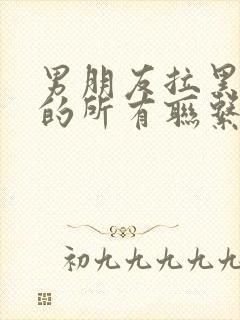 男朋友拉黑
的所有联系
初九九九九九